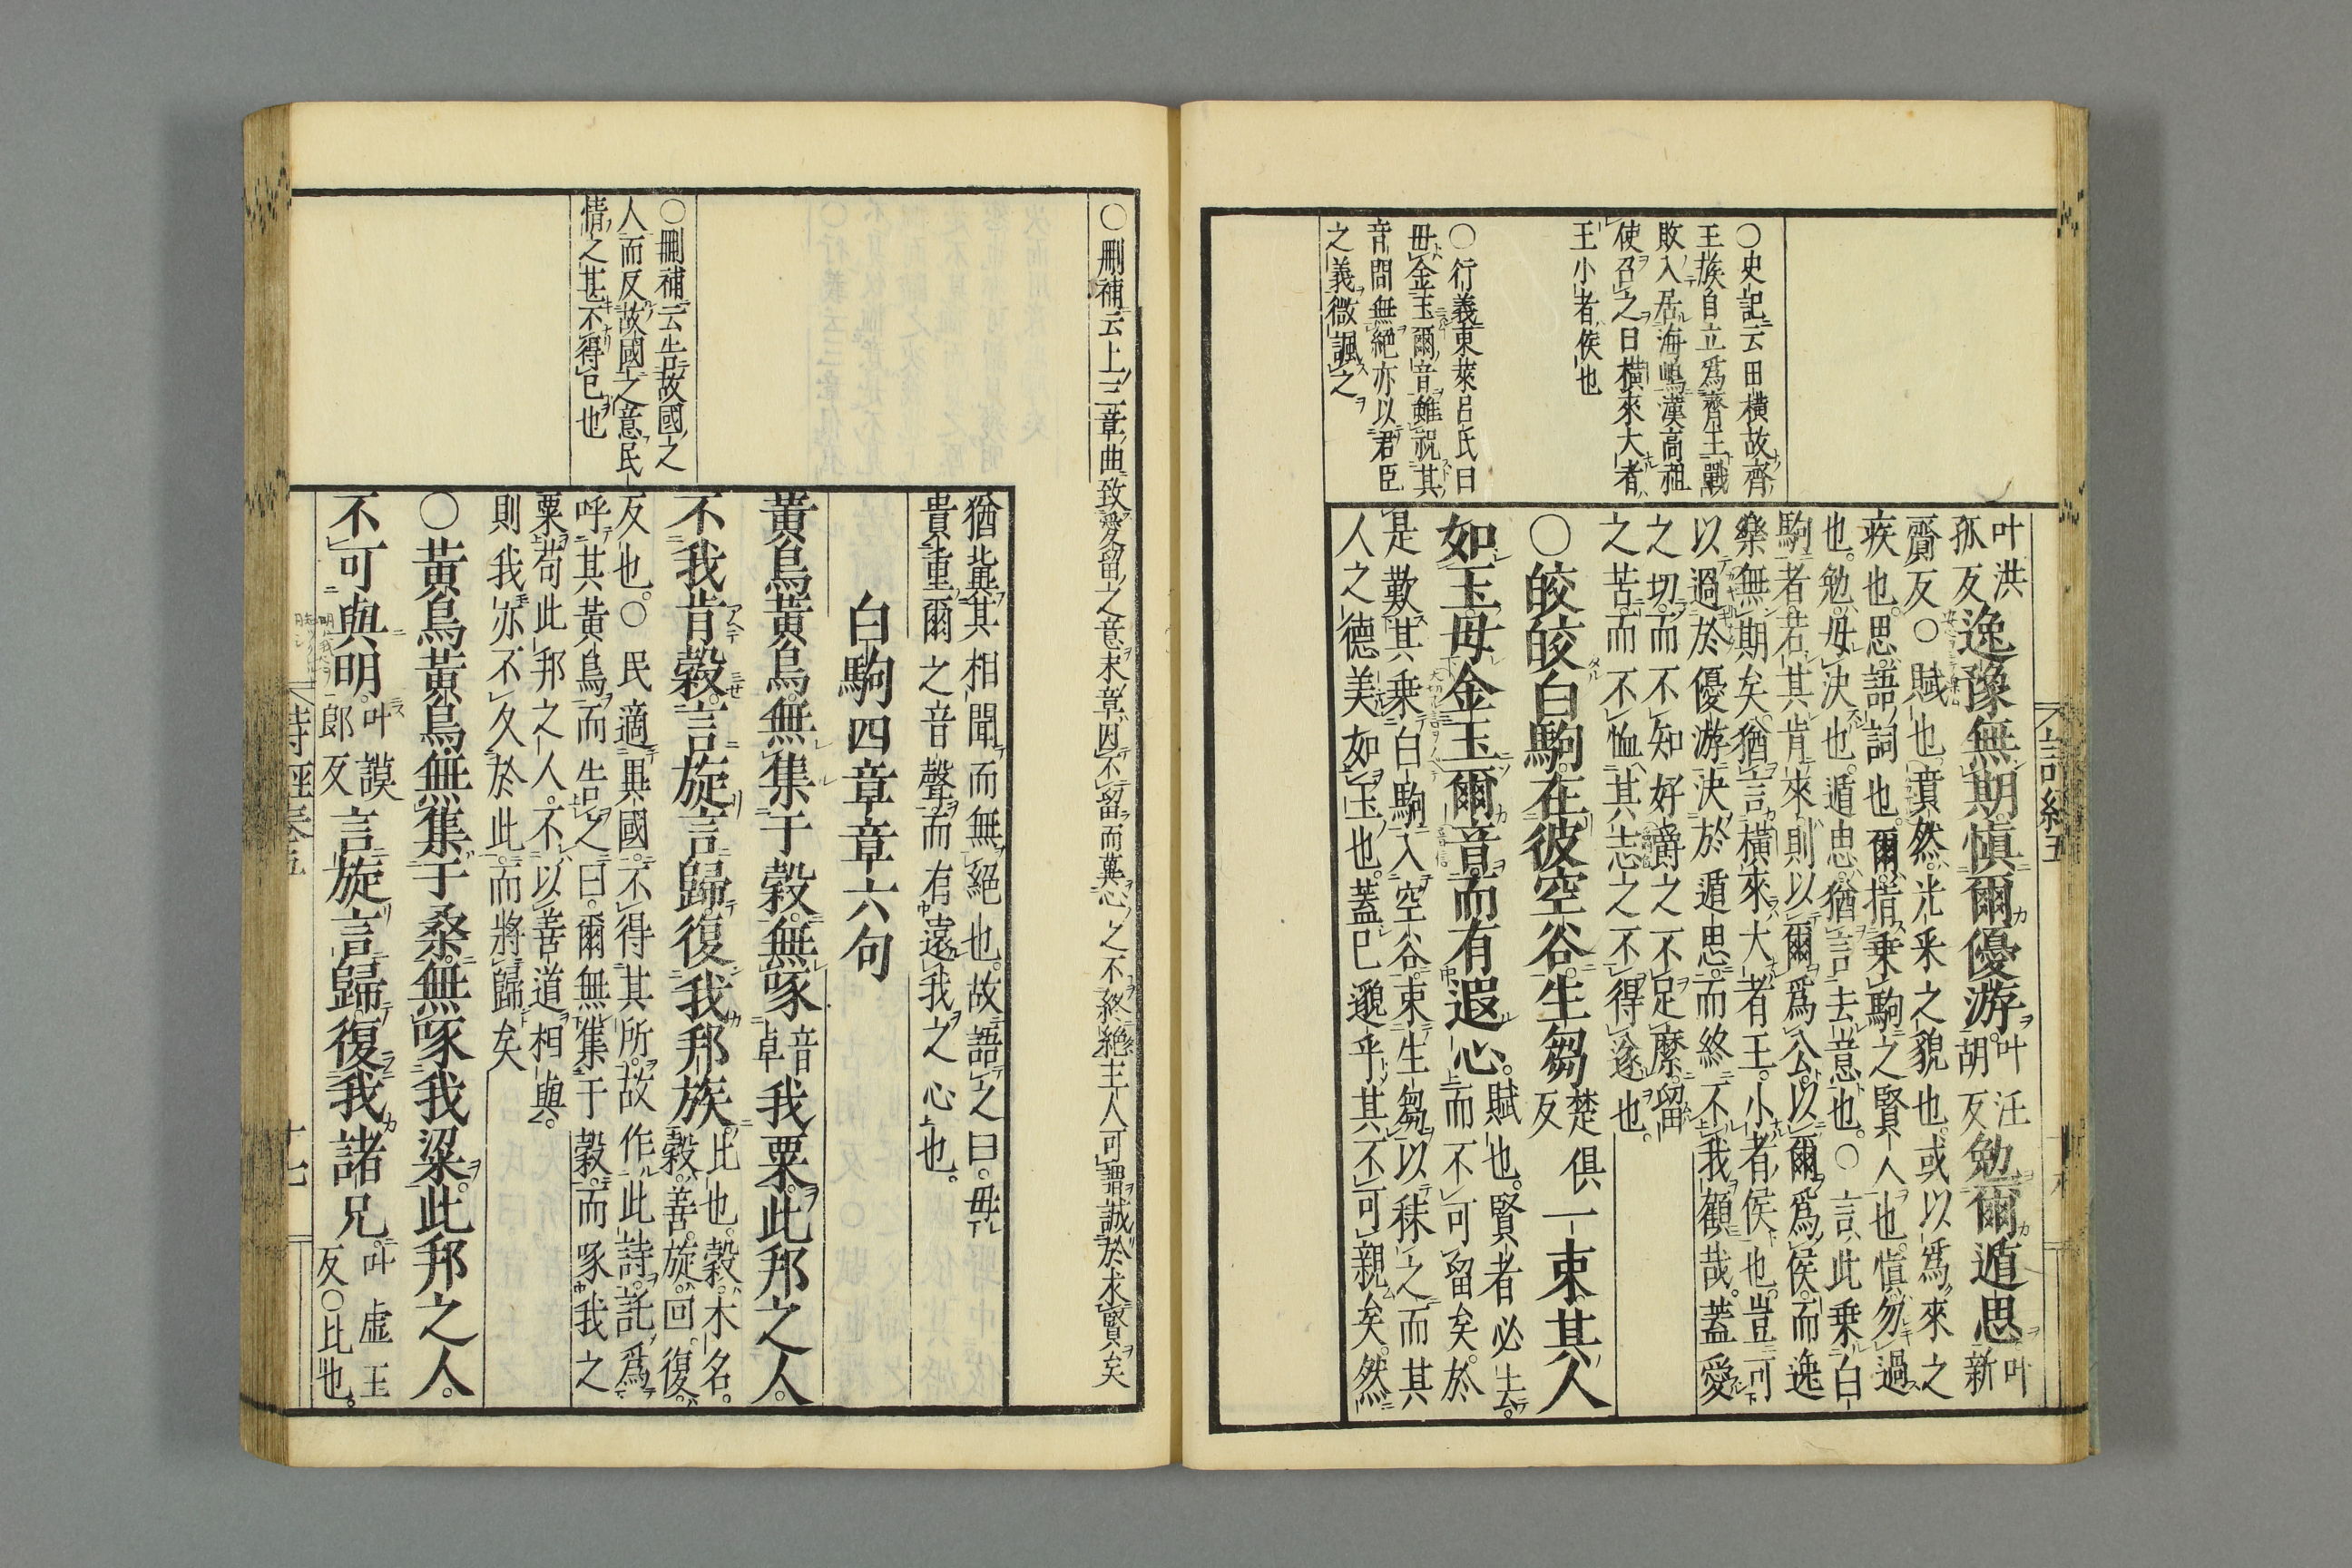 ○史記云田橫故齊
王族自立爲齊王戰
敗入居海嶋漢高祖
使召之曰橫來大者
王小者侯也
○行義東萊呂氏曰
毋金玉爾音雖祝其
音問無絕亦以君臣
之義微諷之
叶洪孤反逸豫無期愼爾優游叶汪胡反勉爾遁思叶新
齎反○賦也賁然光釆之貌也或以爲來之
疾也思語詞也爾指乗駒之賢人也愼勿過
也勉毋決也遁思猶言去意也○言此乗白
駒者若其肯來則以爾爲公以爾爲侯而逸
樂無期矣猶言橫來大者王小者侯也豈可
以過於優游決於遁思而終不我顧哉蓋愛
之切而不知好爵之不足縻留
之苦而不恤其志之不得遂也
○皎皎白駒在彼空谷生芻楚俱反一束其人
如玉毋金玉爾音而有遐心賦也賢者必去而不可留矣於
是歎其乗白駒入空谷束生芻以秣之而其
人之德美如玉也蓋已邈乎其不可親矣然
○刪補云上三章曲致愛留之意末章因不留而冀心之不終絕主人可謂誠於求賢矣
猶冀其相聞而無絕也故語之曰毋
貴重爾之音聲而有遠我之心也
白駒四章章六句
黃鳥黃鳥無集于穀無啄音卓我粟此邦之人
不我肯穀言旋言歸復我邦族比也穀木名穀善旋回復
反也○民適異國不得其所故作此詩託爲
呼其黃鳥而告之曰爾無集于穀而啄我之
粟苟此邦之人不以善道相與
則我亦不久於此而將歸矣
○黃鳥黃鳥無集于桑無啄我粱此邦之人
不可與明叶謨郎反言旋言歸復我諸兄叶虛王反○比也
○刪補云告故國之
人而反故國之意民
情之甚不得已也
詩經卷五
十七